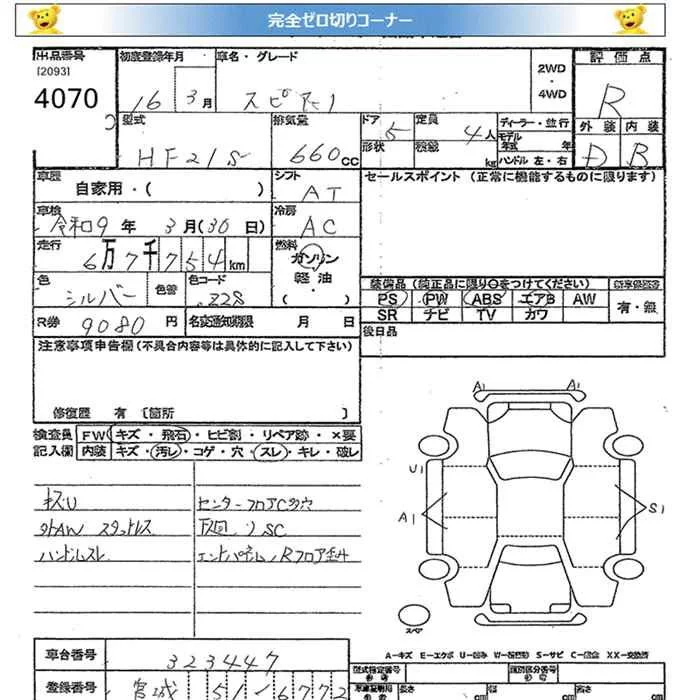 完全ゼロ切りコーナー
出品番号 初度登録年月 車名・グレード 2WD・4WD 評価点
[2093]
4070 16 3月 R
型式 排気量 ドア 定員 ディーラー・並行 外装 内装
HF21S 660cc 5 4人 D B
形状 積載 kg モデル年式 年 ハンドル 左・右
車歴 自家用・( ) シフト AT セールスポイント (正常に機能するものに限ります)
車検 令和9年 3月(30日) 冷房 AC
走行 6万7千754km 燃料 ガソリン 軽油 ・( )
色 シルバー 色替 色コード Z2S
装備品 (純正品に限り○をつけてください)
PS PW ABS エアB AW 有・無
SR ナビ TV カワ
R券 9080円 名変通知期限 月 日 後日品
注意事項申告欄(不具合内容等は具体的に記入して下さい)
修復歴 有 [箇所 ]
検査員 FW キズ・飛石・ヒビ割・リペア跡・×要
記入欄 内装 キズ・汚レ・コゲ・穴・スレ・キレ・破レ
キズU センターフロアC穴
外AW スタットレス 下廻りSC
ハンドルスレ エンドパネル/Rフロア歪み
A1 A1
U1
A1 S1
スペア
A-キズ E-エクボ U-凹み W-板金跡 S-サビ C-腐食 XX-交換済
車台番号 323447 型式指定番号 類別区分番号
登録番号 宮城 51-6772 長さ cm 幅 cm 高さ cm